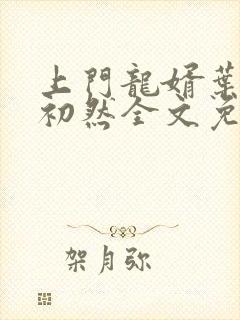 上門龍婿葉
初然全文免
架月弥